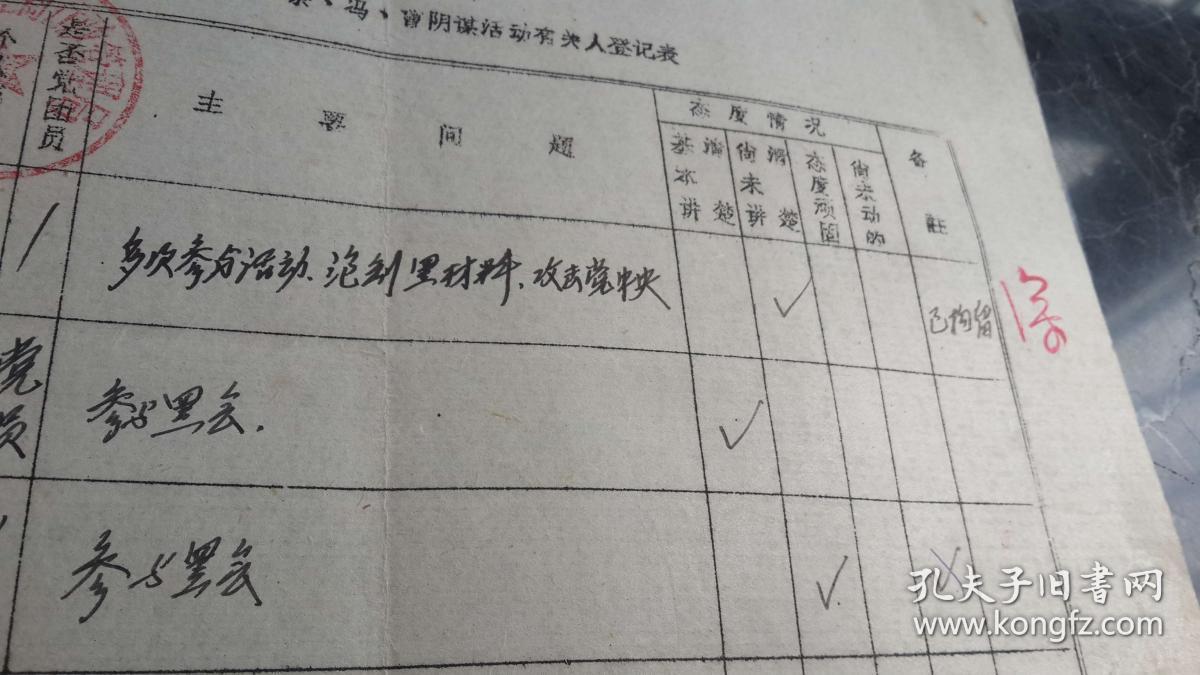 、冯、曾阴谋活动有关人登记表
是否党团员
主要问题
态度情况
基本讲清楚
尚未讲清楚
态度顽固
尚未动的
备註
多次参与活动、泡制黑材料、攻击党中央
已拘留
党员
参与黑会.
参与黑会
孔夫子旧书网
www.kongfz.com